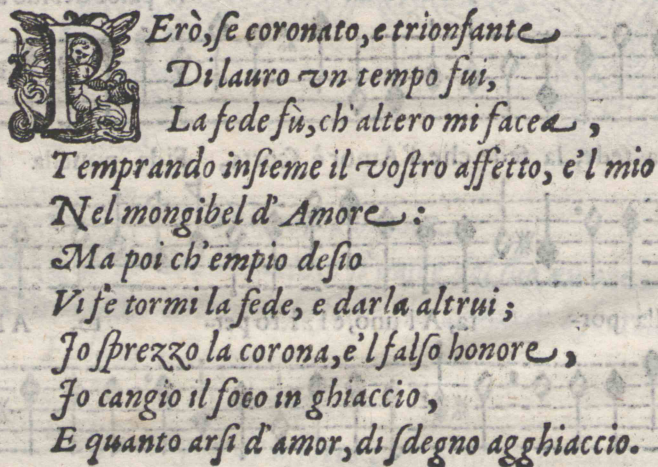 PErò, ſe coronato, e trionfante
Di lauro vn tempo fui,
La fede fù, ch'altero mi facea,
Temprando inſieme il voſtro affetto, e'l mio
Nel mongibel d'Amore:
Ma poi ch'empio deſio
Vi fè tormi la fede, e darla altrui;
Io ſprezzo la corona, e'l falſo honore,
Io cangio il foco in ghiaccio,
E quanto arſi d'amor, di ſdegno agghiaccio.